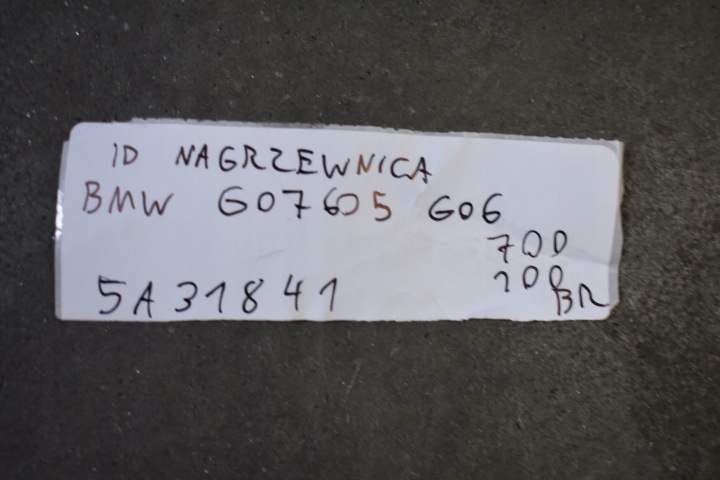 ID NAGRZEWNICA
BMW G07 G05 G06
700
5A31841 200
BR